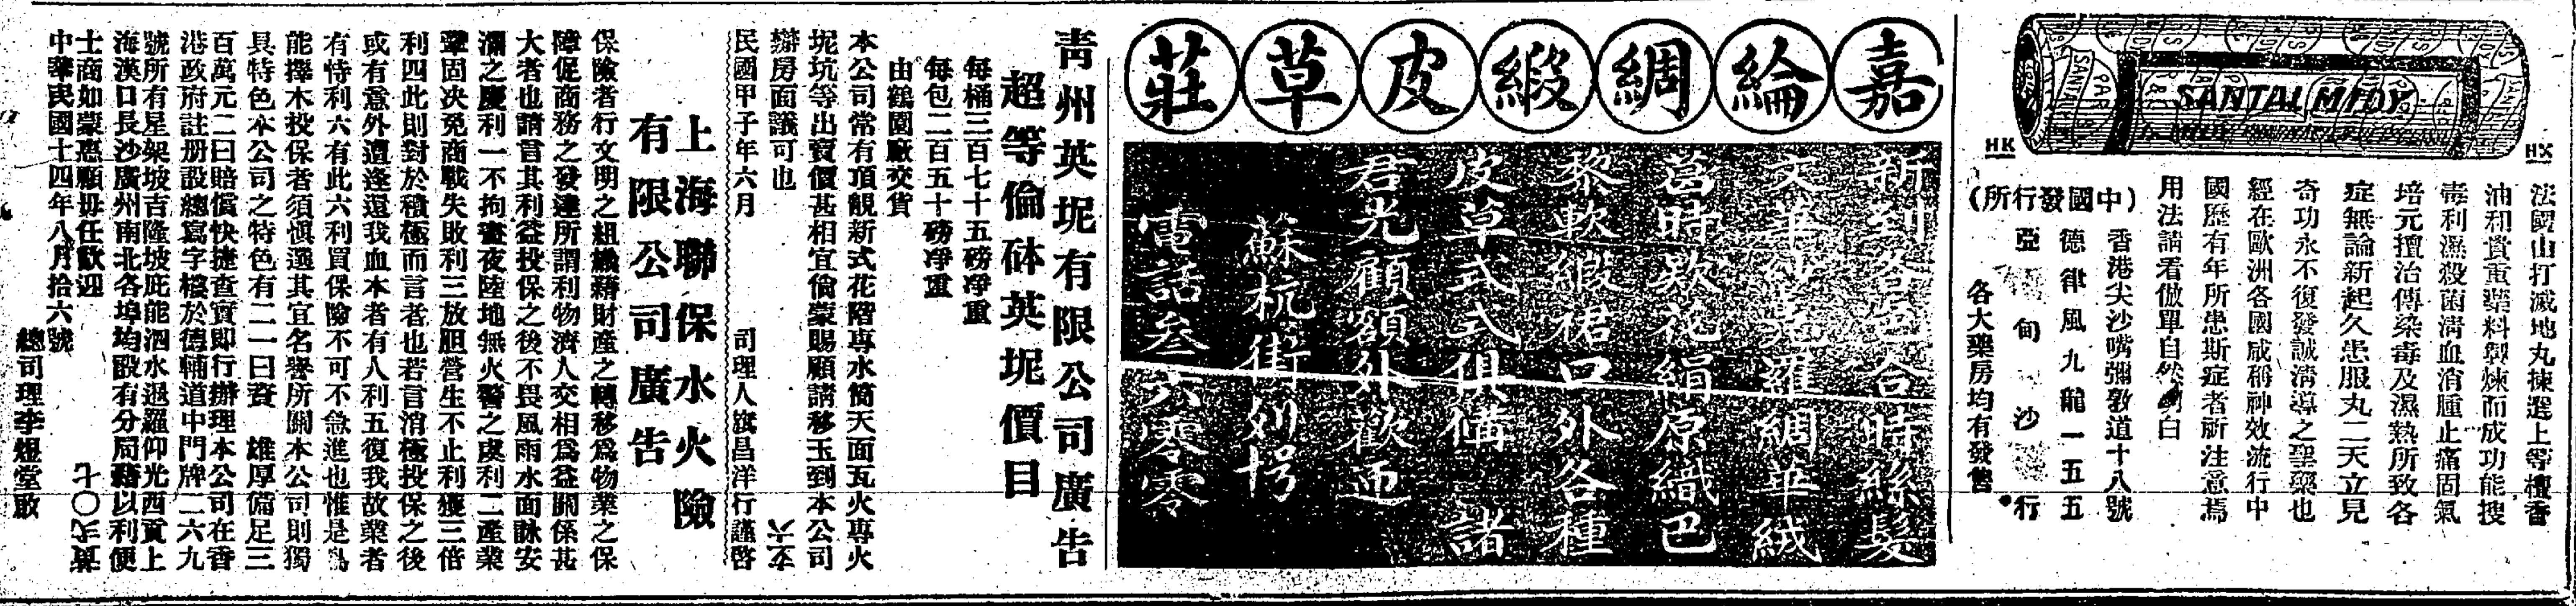 SANTAL MIDY
HK
HK
法國山打滅地丸揀選上等檀香
油和貴重藥料製煉而成功能搜
毒利濕殺菌清血消腫止痛固氣
培元擅治傳染毒及濕熱所致各
症無論新起久患服丸二天立見
奇功永不復發誠淸導之聖藥也
經在歐洲各國咸稱神效流行中
國歷有年所患斯症者祈注意焉
用法請看倣單自然明白
(中國發行所)
香港尖沙嘴彌敦道十八號
德律風九龍一五五
亞甸沙行
各大藥房均有發售
嘉綸綢緞皮草莊
新到各合時絲髮
文華羅綢羊絨
莒時欵花絹原織巴
黎軟緞裙口外各種
皮草式式俱備諸
君光顧額外歡迎
蘇杭街列拐
電話叁六零零
青州英坭有限公司廣告
超等倫砵英坭價目
每桶三百七十五磅凈重
每包二百五十磅凈重
由鶴園廠交貨
本公司常有頂靚新式花階專水筒天面瓦火專火
坭坑等出賣價甚相宜倘蒙賜顧請移玉到本公司
辦房面議可也
民國甲子年六月
司理人旗昌洋行謹啓
上海聯保水火險
有限公司廣告
保險者行文明之組織藉財產之轉移爲物業之保
障促商務之發達所謂利物濟人交相爲益關係甚
大者也請言其利益投保之後不畏風雨水面詠安
瀾之慶利一不拘晝夜陸地無火警之虞利二產業
鞏固决免商戰失敗利三放胆營生不止利獲三倍
利四此則對於積極而言者也若言消極投保之後
或有意外遭逢還我血本者有人利五復我故業者
有恃利六有此六利買保險不可不急進也惟是
能擇木投保者須愼選其宜名譽所關本公司則獨
具特色本公司之特色有二一曰資 雄厚備足三
百萬元二曰賠償快捷查實即行辦理本公司在香
港政府註册設總寫字樓於德輔道中門牌二六九
號所有星架坡吉隆坡庇能泗水暹羅仰光西貢上
海漢口長沙廣州南北各埠均設有分局藉以利便
士商如蒙惠顧毋任歡迎
中華民國十四年八月拾六號
總司理李煜堂啟